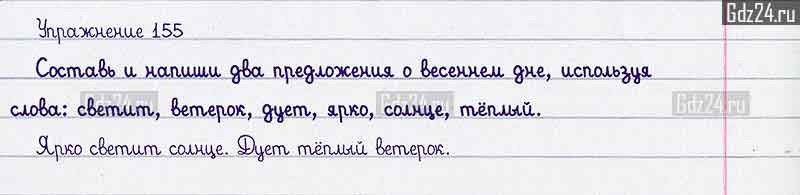 Gdz24.ru
Упражнение 155
Составь и напиши два предложения о весеннем дне, используя
слова: светит, ветерок, дует, ярко, солнце, тёплый.
Gdz24.ru Gdz24.ru
Ярко светит солнце. Дует тёплый ветерок.